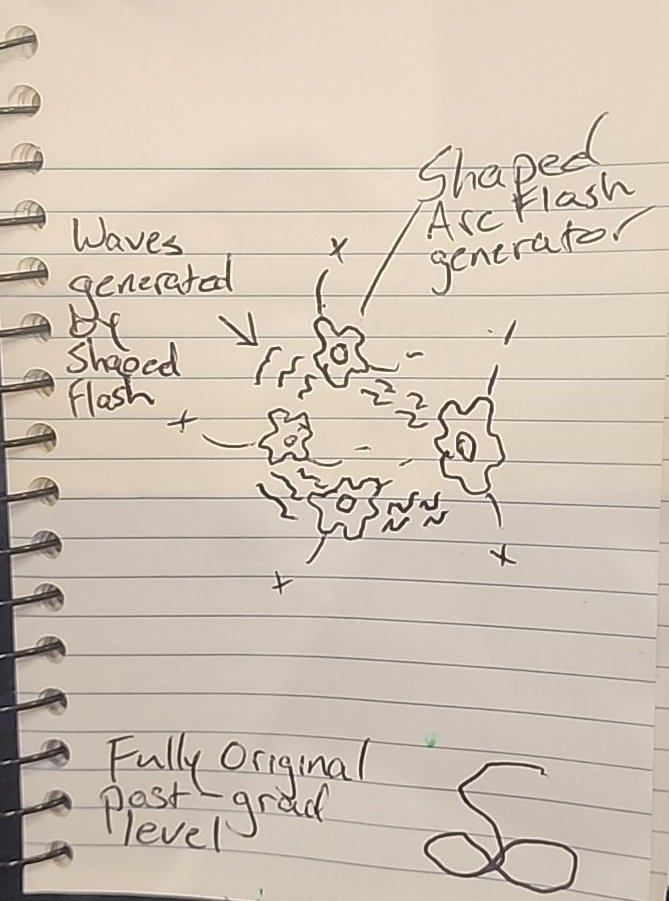 Shaped
Arc Flash
generator
Waves
generated
by
Shaped
Flash
x
-
-
+
-
-
+
x
+
Fully Original
post-grad
level